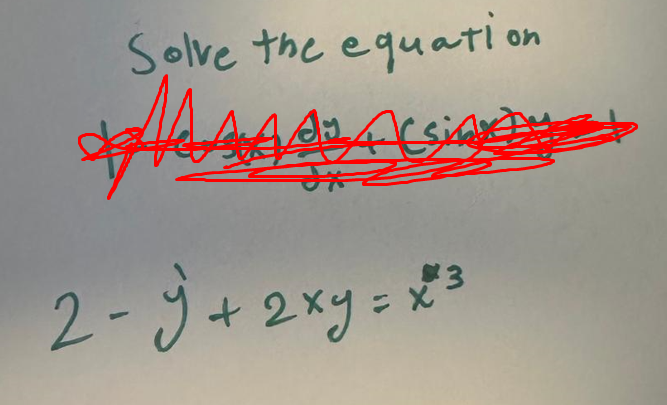 Solve the equation
2 - y' + 2xy = x³